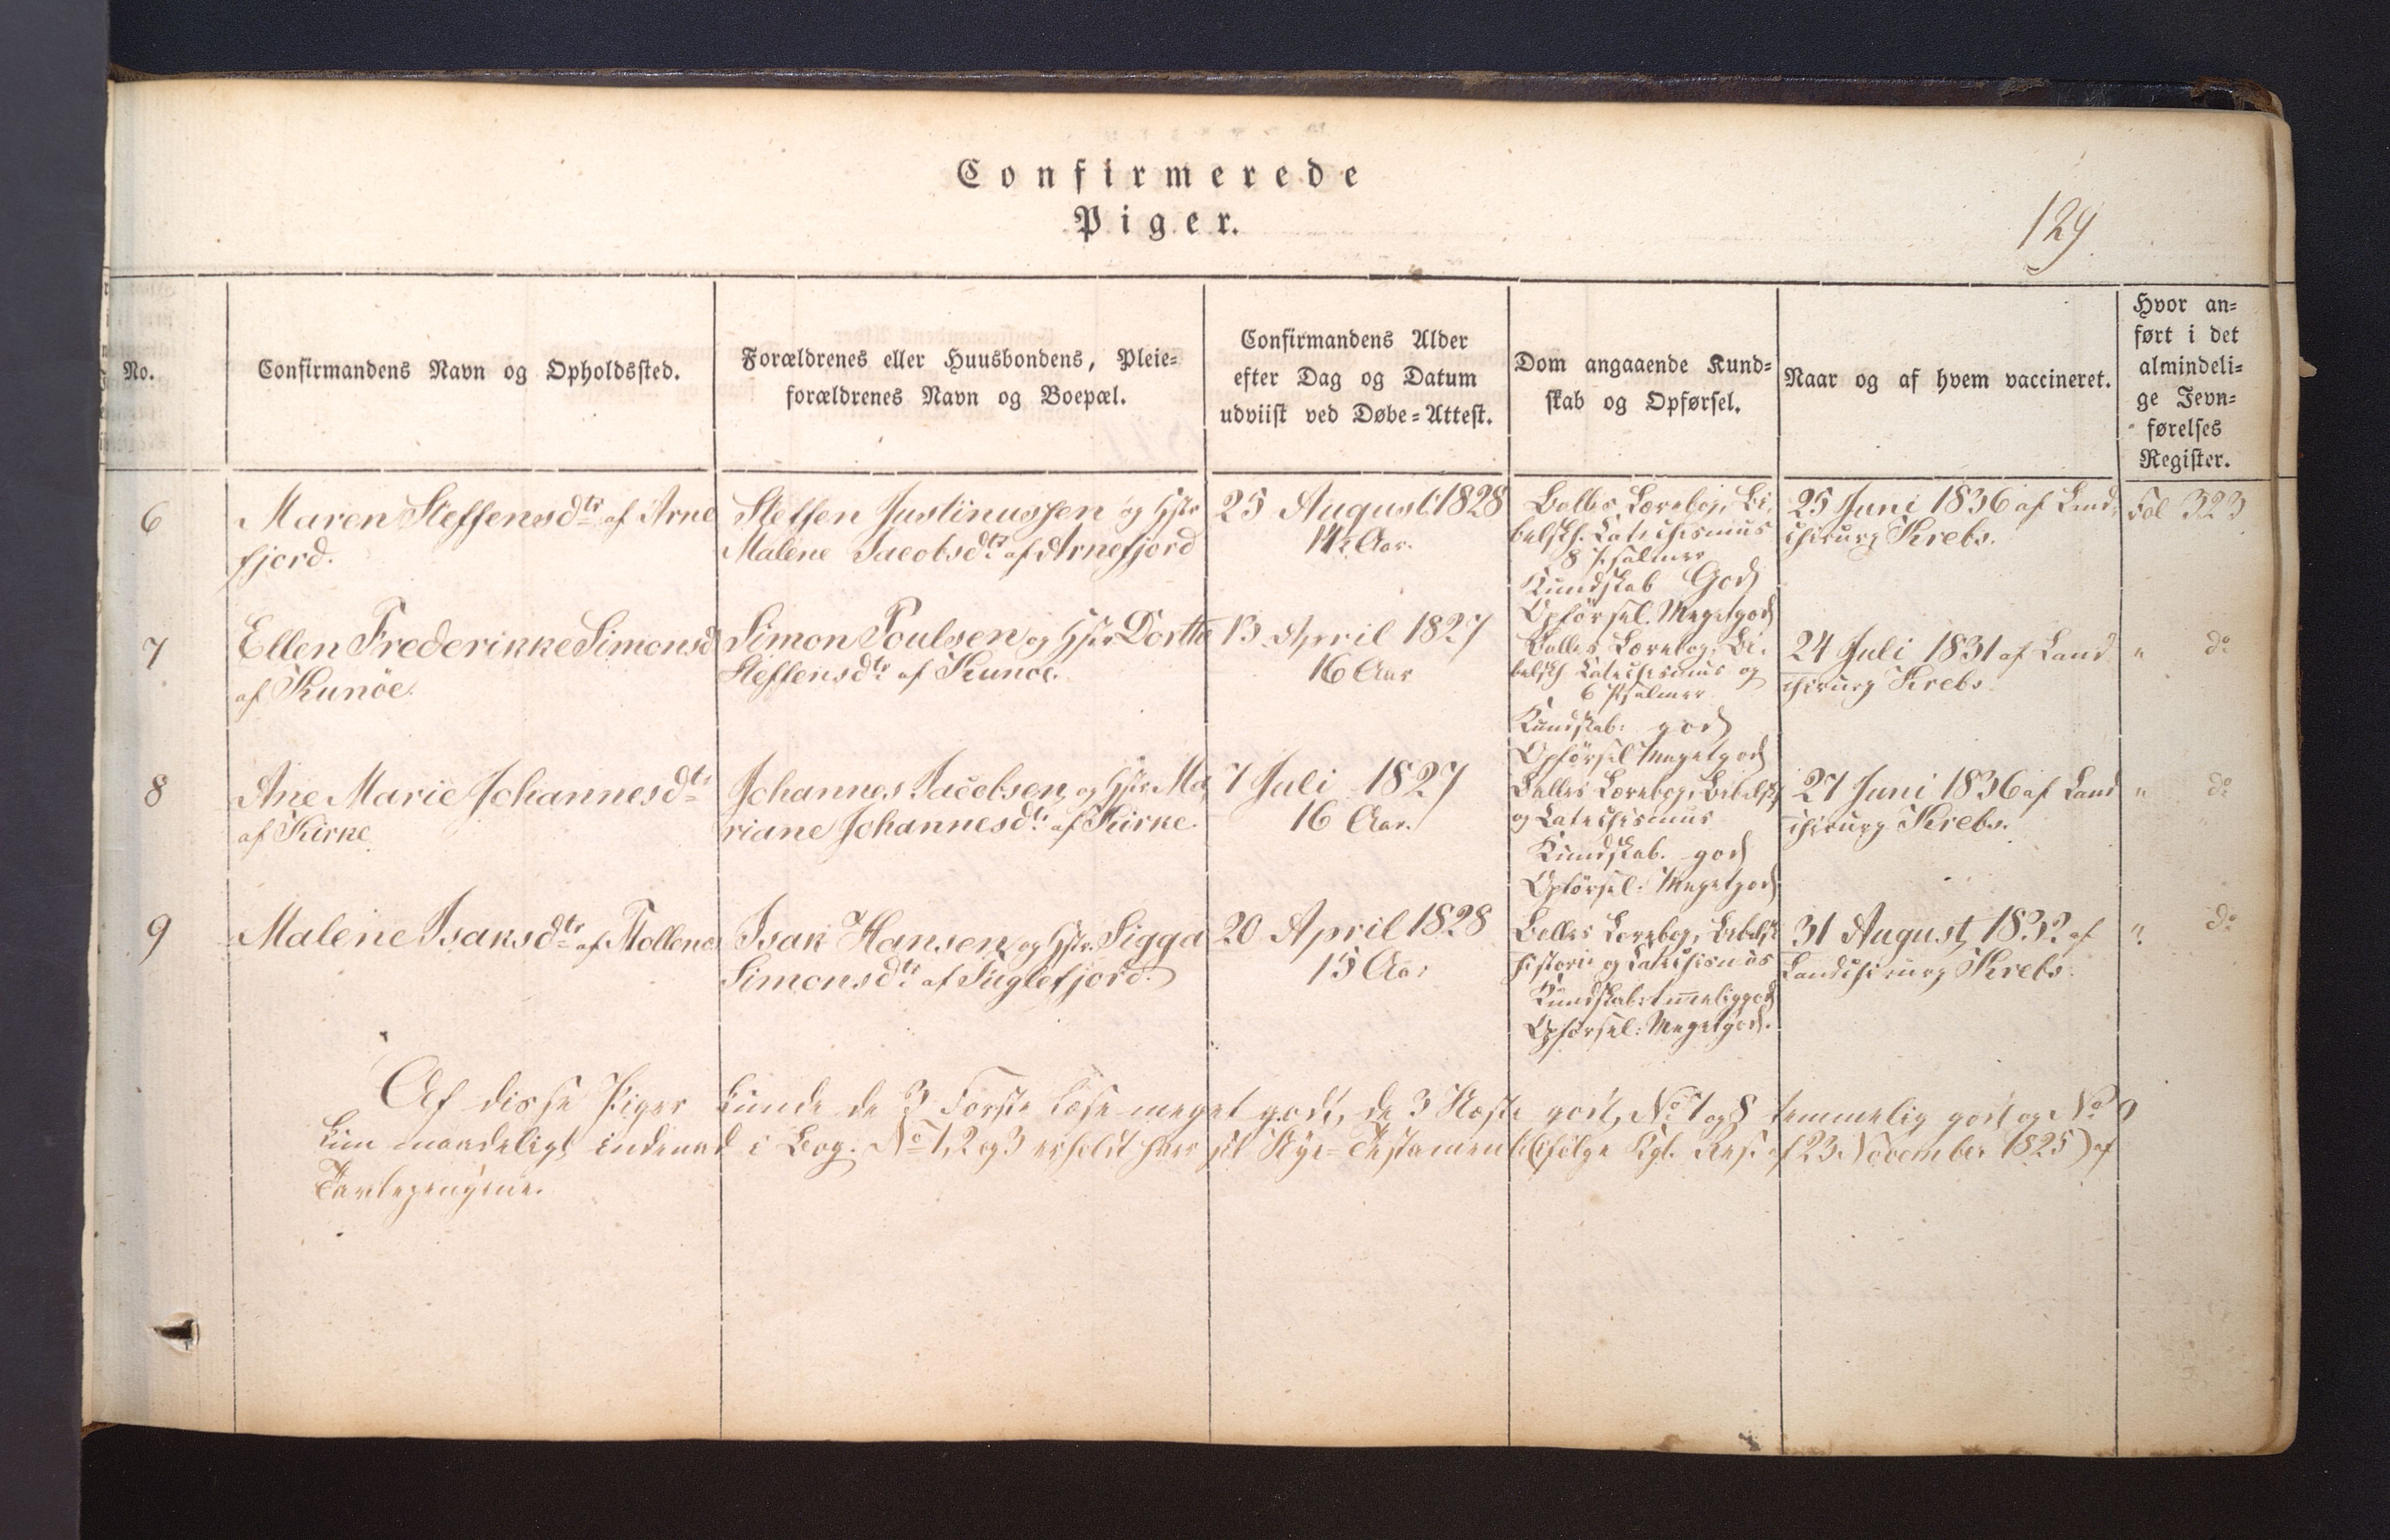 Confirmerede
Piger.
129
No.
Confirmandens Navn og Opholdssted.
Forældrenes eller Huusbondens, Pleie=
forældrenes Navn og Boepæl.
Confirmandens Alder
efter Dag og Datum
udviist ved Døbe=Attest.
Dom angaaende Kund=
skab og Opførsel.
Naar og af hvem vaccineret.
Hvor an=
ført i det
almindeli=
ge Jevn=
førelses
Register.
6
Maren Steffensdtr af Arne
fjord.
Steffen Justinussen og Hstr
Malene Jacobsdtr af Arnefjord
25 August 1828
14½ Aar.
Balles Lærebog, Bi,
belsk h. Catechismus
8 Psalmer
Kundskab God
Opførsel. Megetgod
25 Juni 1836 af Land,
chirurg Krebs.
Fol 323
7
Ellen Frederikke Simonsd
af Kunöe.
Simon Poulsen og Hstr Dorthe
Steffensdtr af Kunöe.
13 April 1827
16 Aar
Balles Lærebog, Bi,
belsk h Catechismus og
6 Psalmer
Kundskab: god
Opførsel Megetgod
24 Juli 1831 af Land
chirurg Krebs
" do
8
Ane Marie Johannesdtr
af Kirke
Johannes Jacobsen og Hstr Ma,
riane Johannesdtr af Kirke.
7 Juli 1827
16 Aar.
Balles Lærebog, Bibelsk h
og Catechismus
Kundskab. god
Opførsel: Megetgod
27 Juni 1836 af Land
chirurg Krebs.
" do
9
Malene Isaksdtr af Mollena
Isak Hansen og Hstr. Sigga
Simonsdtr af Fuglefjord.
20 April 1828
15 Aar
Balles Lærebog, Bibelsk
historie og Catechismus
Kundskab: temmeliggod
Opførsel: Megetgod.
31 August 1832 af
Landchirurg Krebs.
" do
Af disse Piger kunde de 3 Første læse meget godt, de 3 Næste godt, No 7 og 8 temmelig godt og No 9
kun maadeligt indenad i Bog. No 1, 2 og 3 erholdt hver sit Nye=Testamente (ifølge Kgl. Res. af 23 November 1825) af
Tavlepengene.